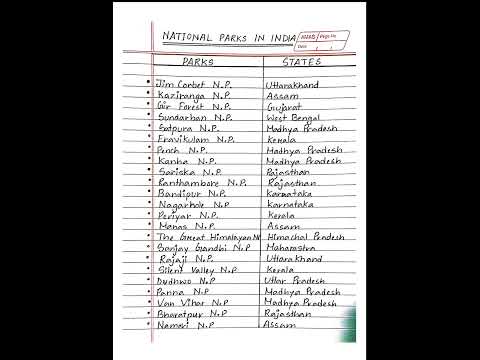 NATIONAL PARKS IN INDIA
Page No
Date
PARKS STATES
Jim Corbet N.P. Uttarakhand
Kaziranga N.P. Assam
Gir Forest N.P. Gujarat
Sundarban N.P. West Bengal
Satpura N.P. Madhya Pradesh
Eravikulam N.P. Kerala
Pench N.P. Madhya Pradesh
Kanha N.P. Madhya Pradesh
Sariska N.P. Rajasthan
Ranthambore N.P. Rajasthan
Bandipur N.P. Karnataka
Nagarhole N.P Karnataka
Periyar N.P. Kerala
Manas N.P. Assam
The Great Himalayan NP Himachal Pradesh
Sanjay Gandhi N.P Maharastra
Rajaji N.P. Uttarakhand
Silent Valley N.P Kerala
Dudhwa N.P. Uttar Pradesh
Panna N.P Madhya Pradesh
Van Vihar N.P Madhya Pradesh
Bharatpur N.P Rajasthan
Nameri N.P. Assam